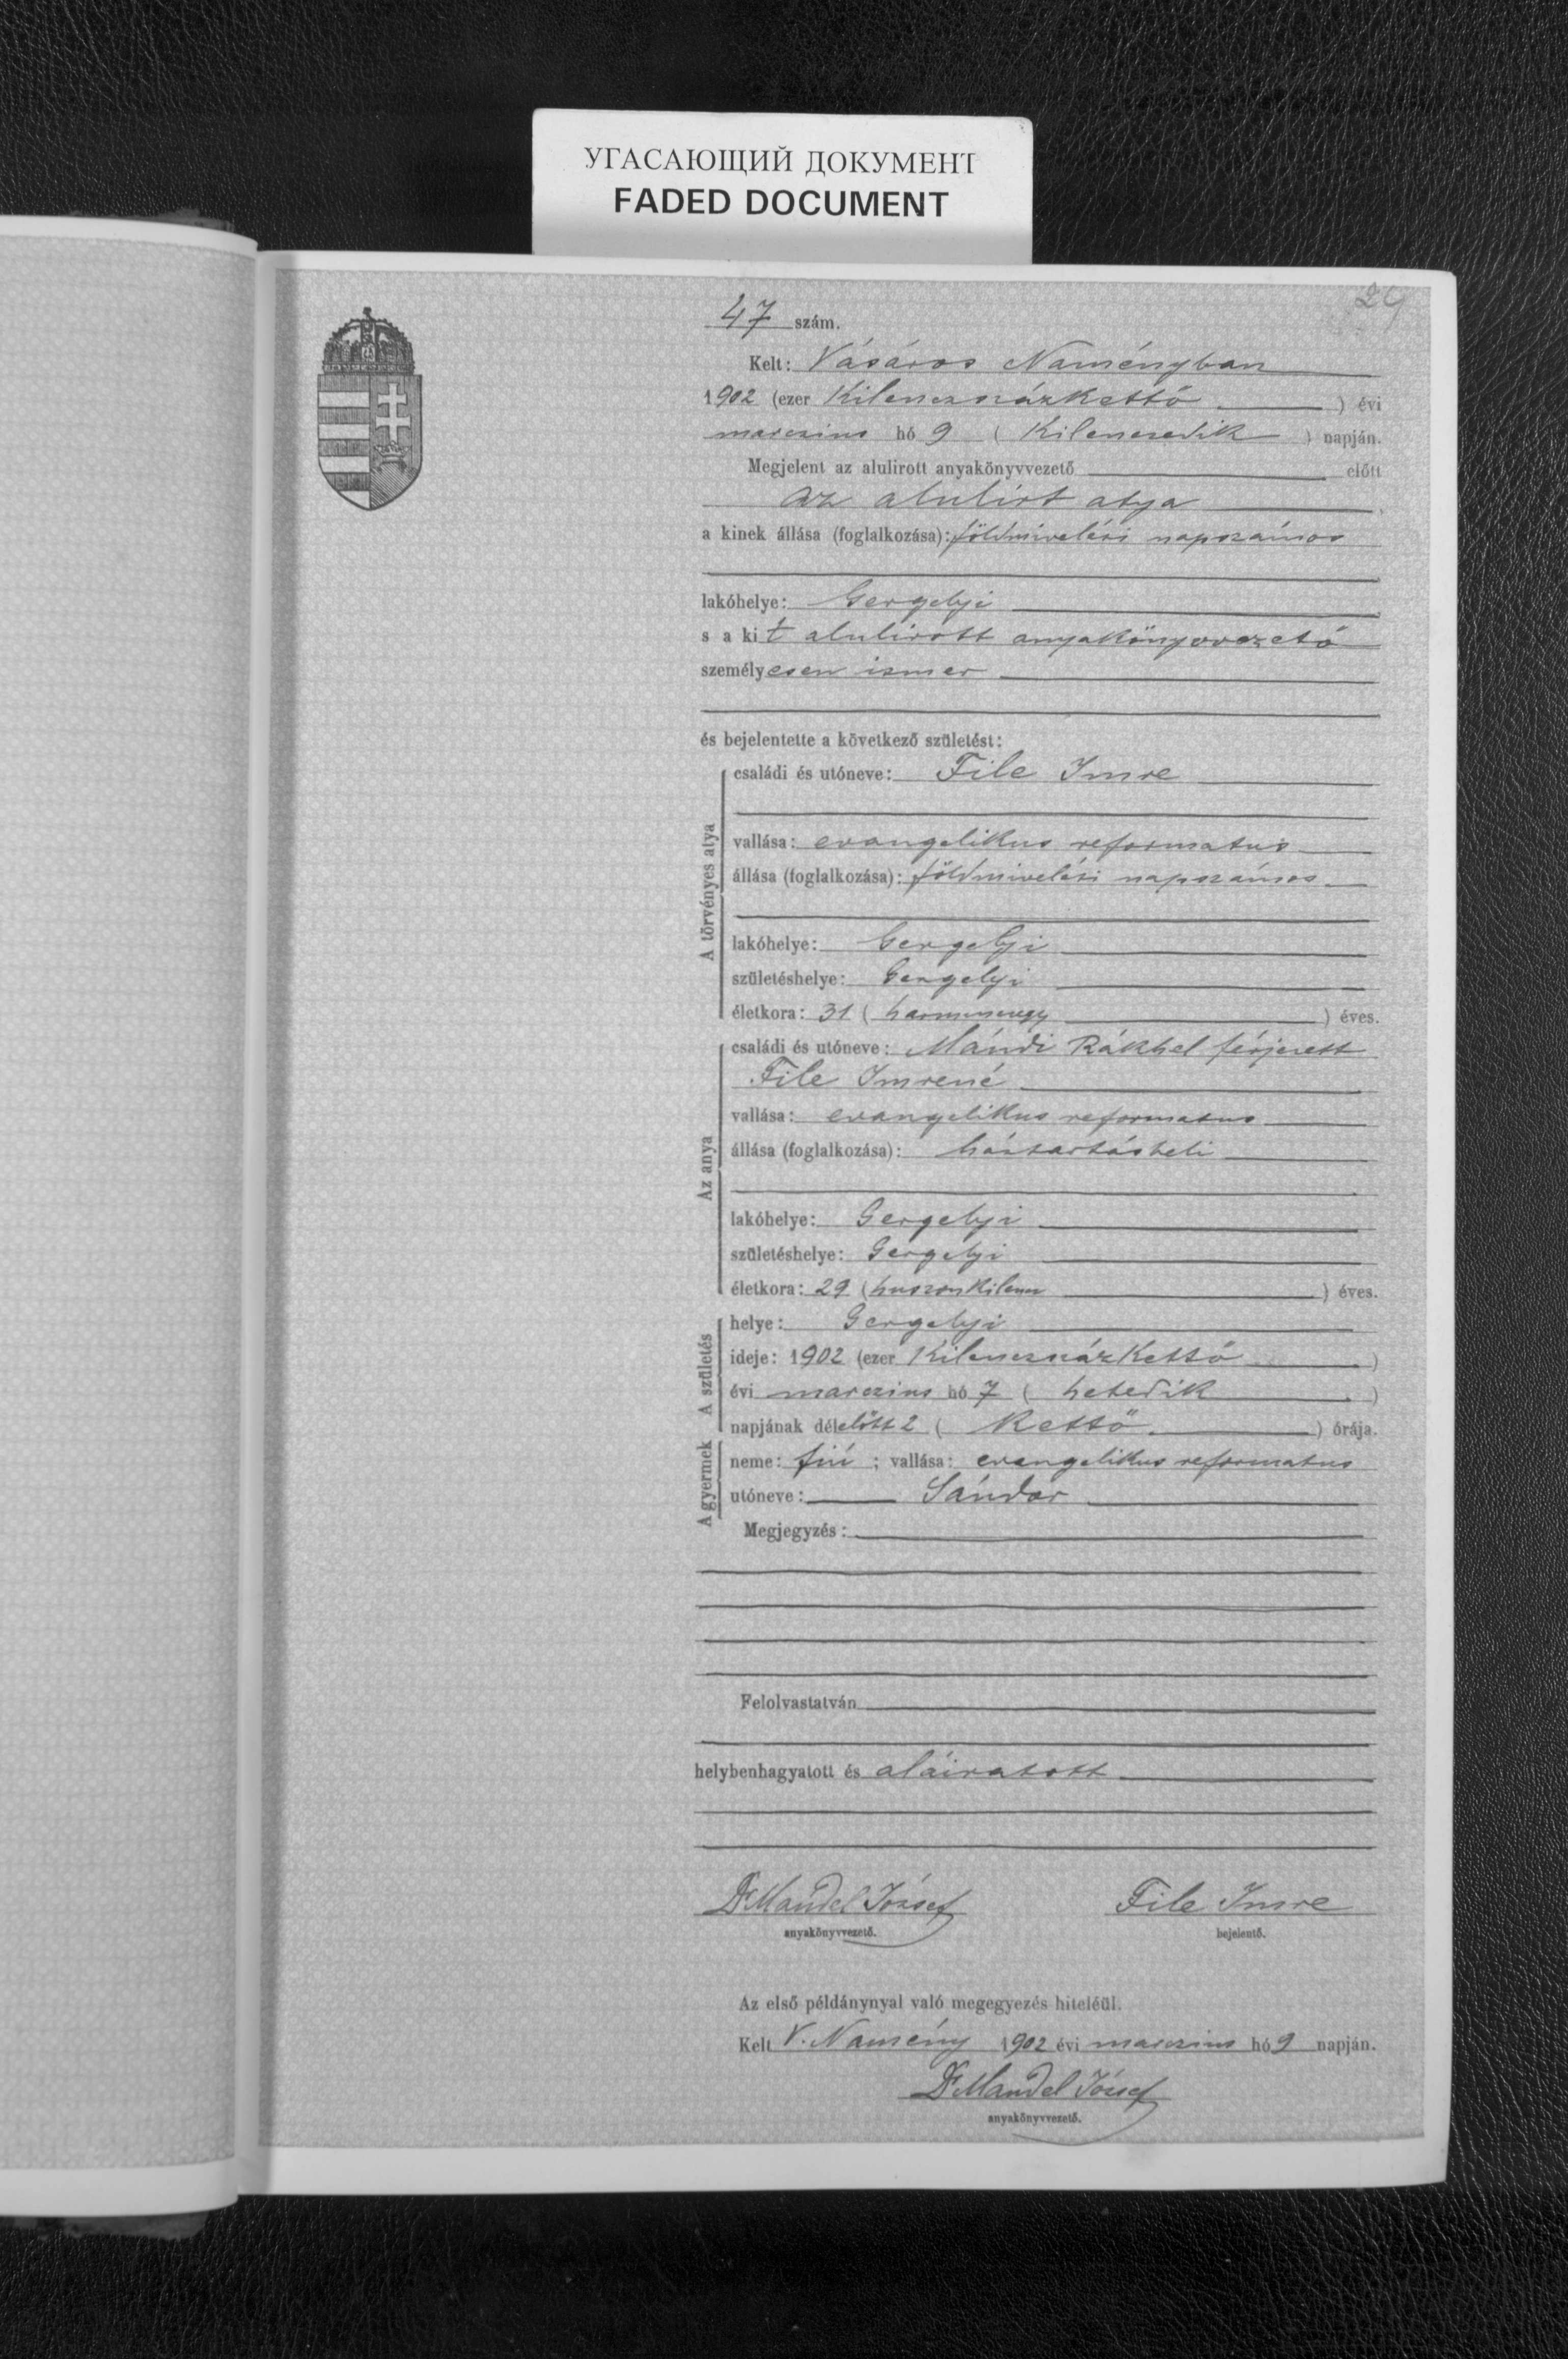 УГАСАЮЩИЙ ДОКУМЕНТ
FADED DOCUMENT
29
47 szám.
Kelt: Vásáros Naményban
1902 (ezer Kilenczszázkettő ) évi
marczius hó 9 ( Kilenczedik ) napján.
Megjelent az alulirott anyakönyvvezető előtt
az alulirt atya
a kinek állása (foglalkozása): földmivelési napszámos
lakóhelye: Gergelyi
s a kit alulirott anyakönyvvezető
személyesen ismer
és bejelentette a következő születést:
A törvényes atya
családi és utóneve: File Imre
vallása: evangelikus reformatus
állása (foglalkozása): földmivelési napszámos
lakóhelye: Gergelyi
születéshelye: Gergelyi
életkora: 31 ( harminczegy ) éves.
Az anya
családi és utóneve: Mándi Rákhel férjezett
File Imrené
vallása: evangelikus reformatus
állása (foglalkozása): háztartásbeli
lakóhelye: Gergelyi
születéshelye: Gergelyi
életkora: 29 (huszonkilencz ) éves.
A születés
helye: Gergelyi
ideje: 1902 (ezer Kilenczszázkettő )
évi marczius hó 7 ( hetedik )
napjának délelőtt 2 ( Kettő ) órája.
A gyermek
neme: fiú ; vallása: evangelikus reformatus
utóneve: Sándor
Megjegyzés:
Felolvastatván
helybenhagyatott és aláiratott
Dr Mandel József File Imre
anyakönyvvezető. bejelentő.
Az első példánynyal való megegyezés hiteléül.
Kelt V. Namény 1902 évi marczius hó 9 napján.
Dr Mandel József
anyakönyvvezető.